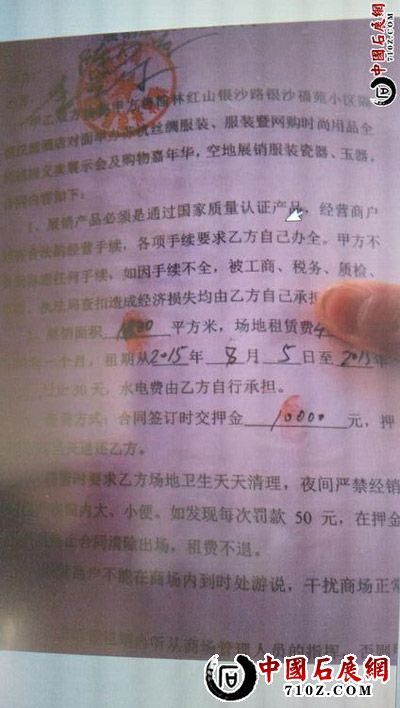 中國石展網
7102.COM
甲乙双方 甲方 榆林红山银沙路银沙福苑小区隔
酒店对面 丝绸服装、服装暨网购时尚用品全
展示会及购物嘉年华，空地展销服装瓷器、玉器。
合同内容如下：
1、展销产品必须是通过国家质量认证产品，经营商户
合法的经营手续，各项手续要求乙方自己办全。甲方不
任何手续，如因手续不全，被工商、税务、质检、
查扣造成经济损失均由乙方自己承担
展销面积 1800 平方米，场地租赁费4
一个月，租期从2015年 8月 5日至 2015年
30天，水电费由乙方自行承担。
方式：合同签订时交押金 10000 元，押
还乙方。
时要求乙方场地卫生天天清理，夜间严禁经销
内大、小便。如发现每次罚款 50 元，在押金
合同清除出场，租费不退。
商户不能在商场内到时处游说，干扰商场正常
听从商场管理人员的指挥，否则
中國石展網
7102.COM